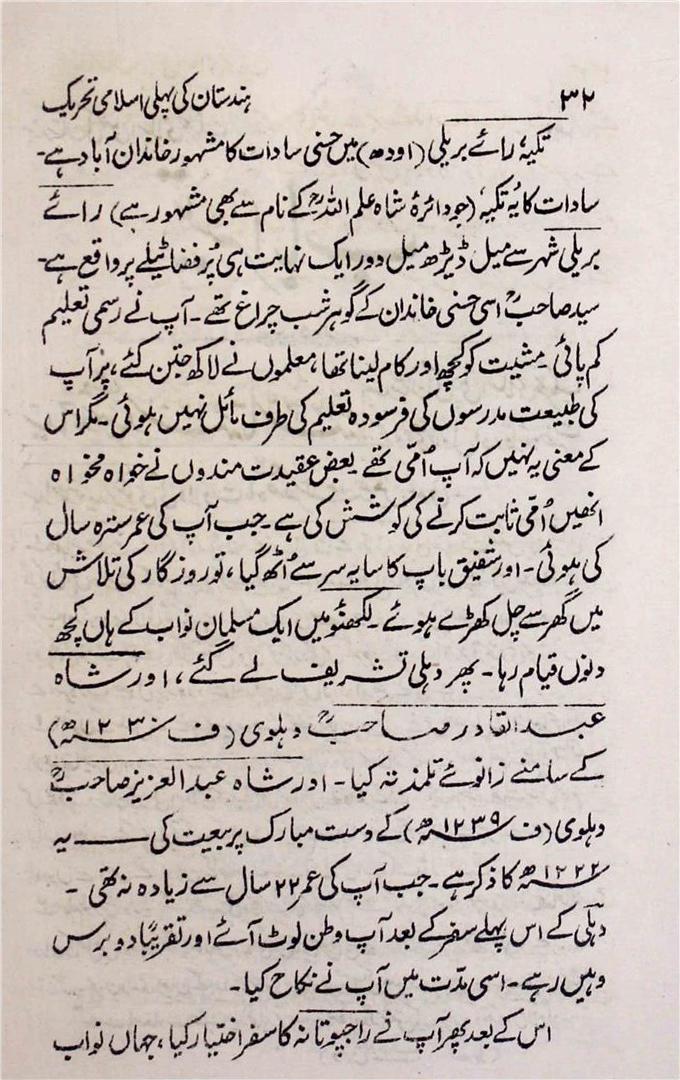 ۳۲ ہندستان کی پہلی اسلامی تحریک
تکیہ، رائے بریلی (اودھ) میں حسنی سادات کا مشہور خاندان آباد ہے۔
سادات کا یہ تکیہ، (جو دائرۂ شاہ علم اللہؒ کے نام سے بھی مشہور ہے) رائے
بریلی شہر سے میل ڈیڑھ میل دور ایک نہایت ہی پُر فضا ٹیلے پر واقع ہے۔
سید صاحبؒ اسی حسنی خاندان کے گوہر شب چراغ تھے۔ آپ نے رسمی تعلیم
کم پائی۔ مشیت کو کچھ اور کام لینا تھا، معلموں نے لاکھ جتن کئے، پر آپ
کی طبیعت مدرسوں کی فرسودہ تعلیم کی طرف مائل نہیں ہوئی۔ مگر اس
کے معنی یہ نہیں کہ آپ اُمّی تھے۔ بعض عقیدت مندوں نے خواہ مخواہ
انھیں اُمّی ثابت کرنے کی کوشش کی ہے۔ جب آپ کی عمر سترہ سال
کی ہوئی۔ اور شفیق باپ کا سایہ سر سے اُٹھ گیا، تو روزگار کی تلاش
میں گھر سے چل کھڑے ہوئے۔ لکھنؤ میں ایک مسلمان نواب کے ہاں کچھ
دنوں قیام رہا۔ پھر دہلی تشریف لے گئے، اور شاہ
عبدالقادر صاحبؒ دہلوی (ف ۱۲۳۰ھ)
کے سامنے زانوئے تلمذ تہ کیا۔ اور شاہ عبدالعزیز صاحبؒ
دہلوی (ف ۱۲۳۹ھ) کے دست مبارک پر بیعت کی —— یہ
۱۲۲۲ھ کا ذکر ہے۔ جب آپ کی عمر ۲۲ سال سے زیادہ نہ تھی۔
دہلی کے اس پہلے سفر کے بعد آپ وطن لوٹ آئے اور تقریباً دو برس
وہیں رہے۔ اسی مدّت میں آپ نے نکاح کیا۔
اس کے بعد پھر آپ نے راجپوتانہ کا سفر اختیار کیا، جہاں نواب